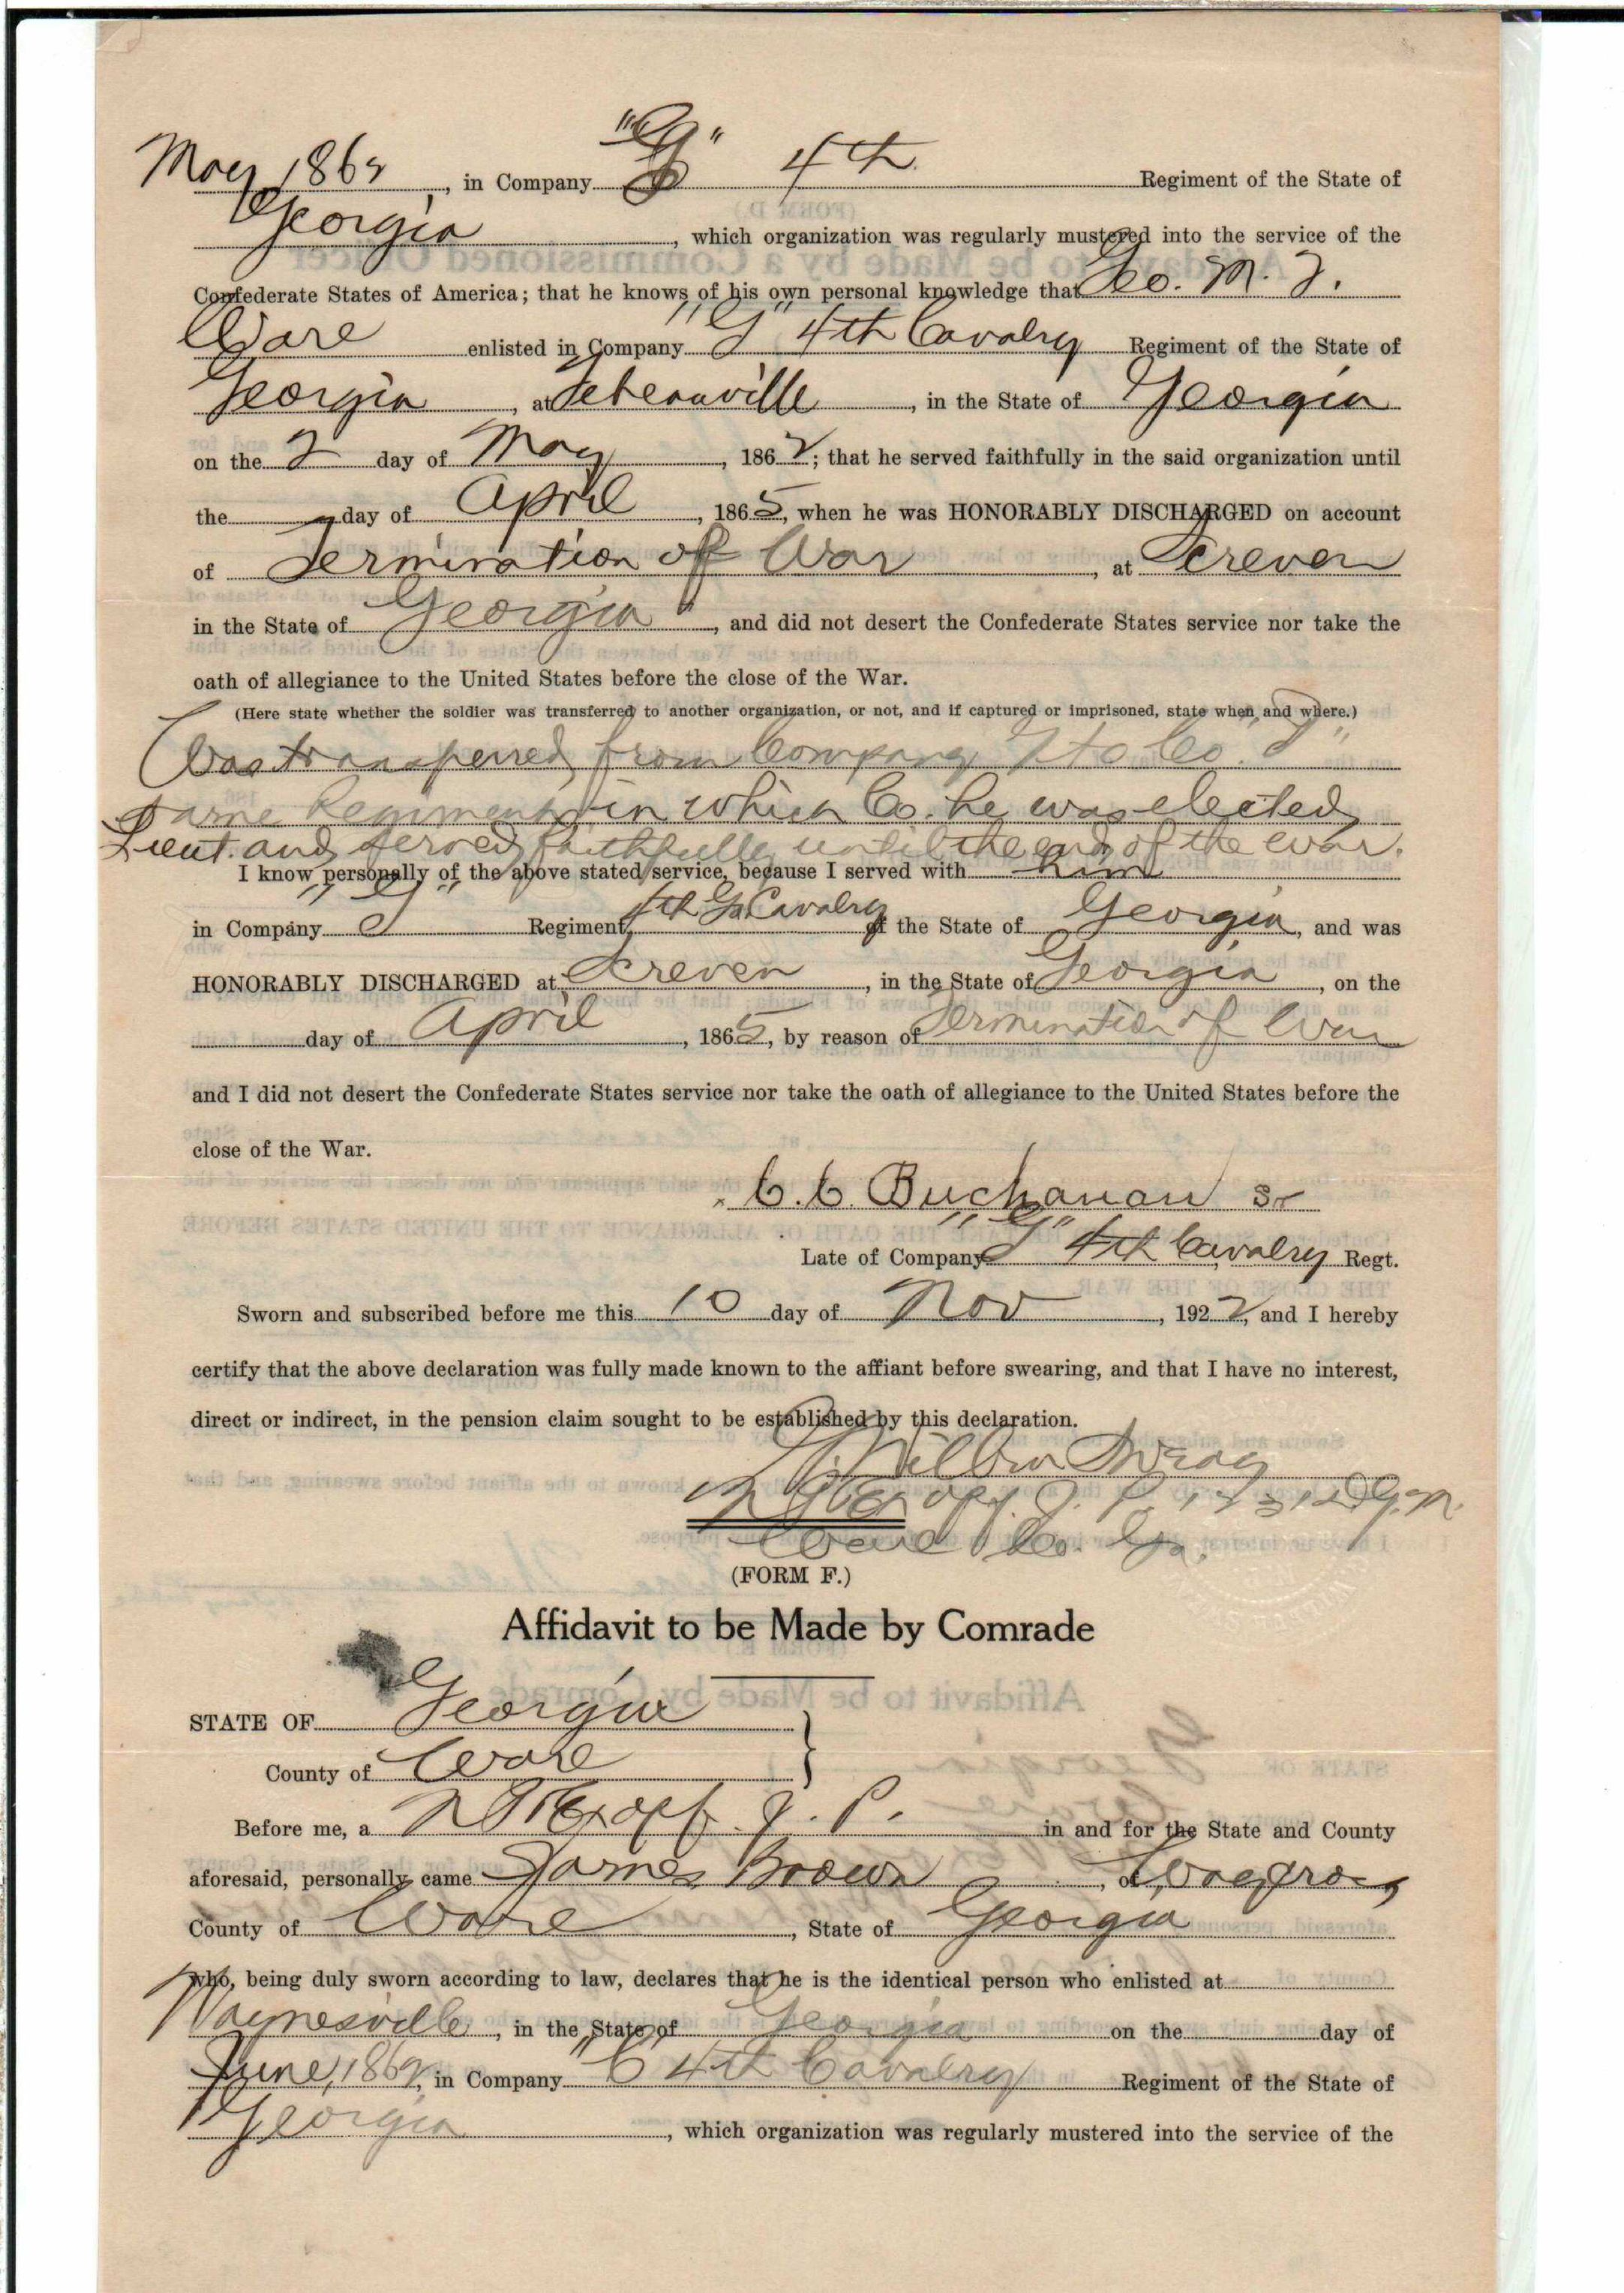 May 1862, in Company "G" 4th Regiment of the State of
Georgia, which organization was regularly mustered into the service of the
Confederate States of America; that he knows of his own personal knowledge that Geo. M. T.
Ware enlisted in Company "G" 4th Cavalry Regiment of the State of
Georgia, at Tebeauville, in the State of Georgia
on the 2 day of May, 1862; that he served faithfully in the said organization until
the day of April, 1865, when he was HONORABLY DISCHARGED on account
of Termination of War, at Screven
in the State of Georgia, and did not desert the Confederate States service nor take the
oath of allegiance to the United States before the close of the War.
(Here state whether the soldier was transferred to another organization, or not, and if captured or imprisoned, state when and where.)
Was transferred from Company G to Co.
same Regiment, in which Co. he was elected
Lieut. and served faithfully until the end of the war.
I know personally of the above stated service, because I served with him
in Company "G" Regiment, 4th Ga Cavalry of the State of Georgia, and was
HONORABLY DISCHARGED at Screven, in the State of Georgia, on the
day of April, 1865, by reason of Termination of War
and I did not desert the Confederate States service nor take the oath of allegiance to the United States before the
close of the War.
C. C. Buchanan Sr
Late of Company "G" 4th Cavalry Regt.
Sworn and subscribed before me this 10 day of Nov, 1922, and I hereby
certify that the above declaration was fully made known to the affiant before swearing, and that I have no interest,
direct or indirect, in the pension claim sought to be established by this declaration.
J. P. 1231 D. G. M.
Ware Co. Ga.
(FORM F.)
Affidavit to be Made by Comrade
STATE OF Georgia
County of Ware
Before me, a J. P. in and for the State and County
aforesaid, personally came James Brown, of Waycross
County of Ware, State of Georgia
who, being duly sworn according to law, declares that he is the identical person who enlisted at
Waynesville, in the State of Georgia on the day of
June, 1862, in Company "C" 4th Cavalry Regiment of the State of
Georgia, which organization was regularly mustered into the service of the